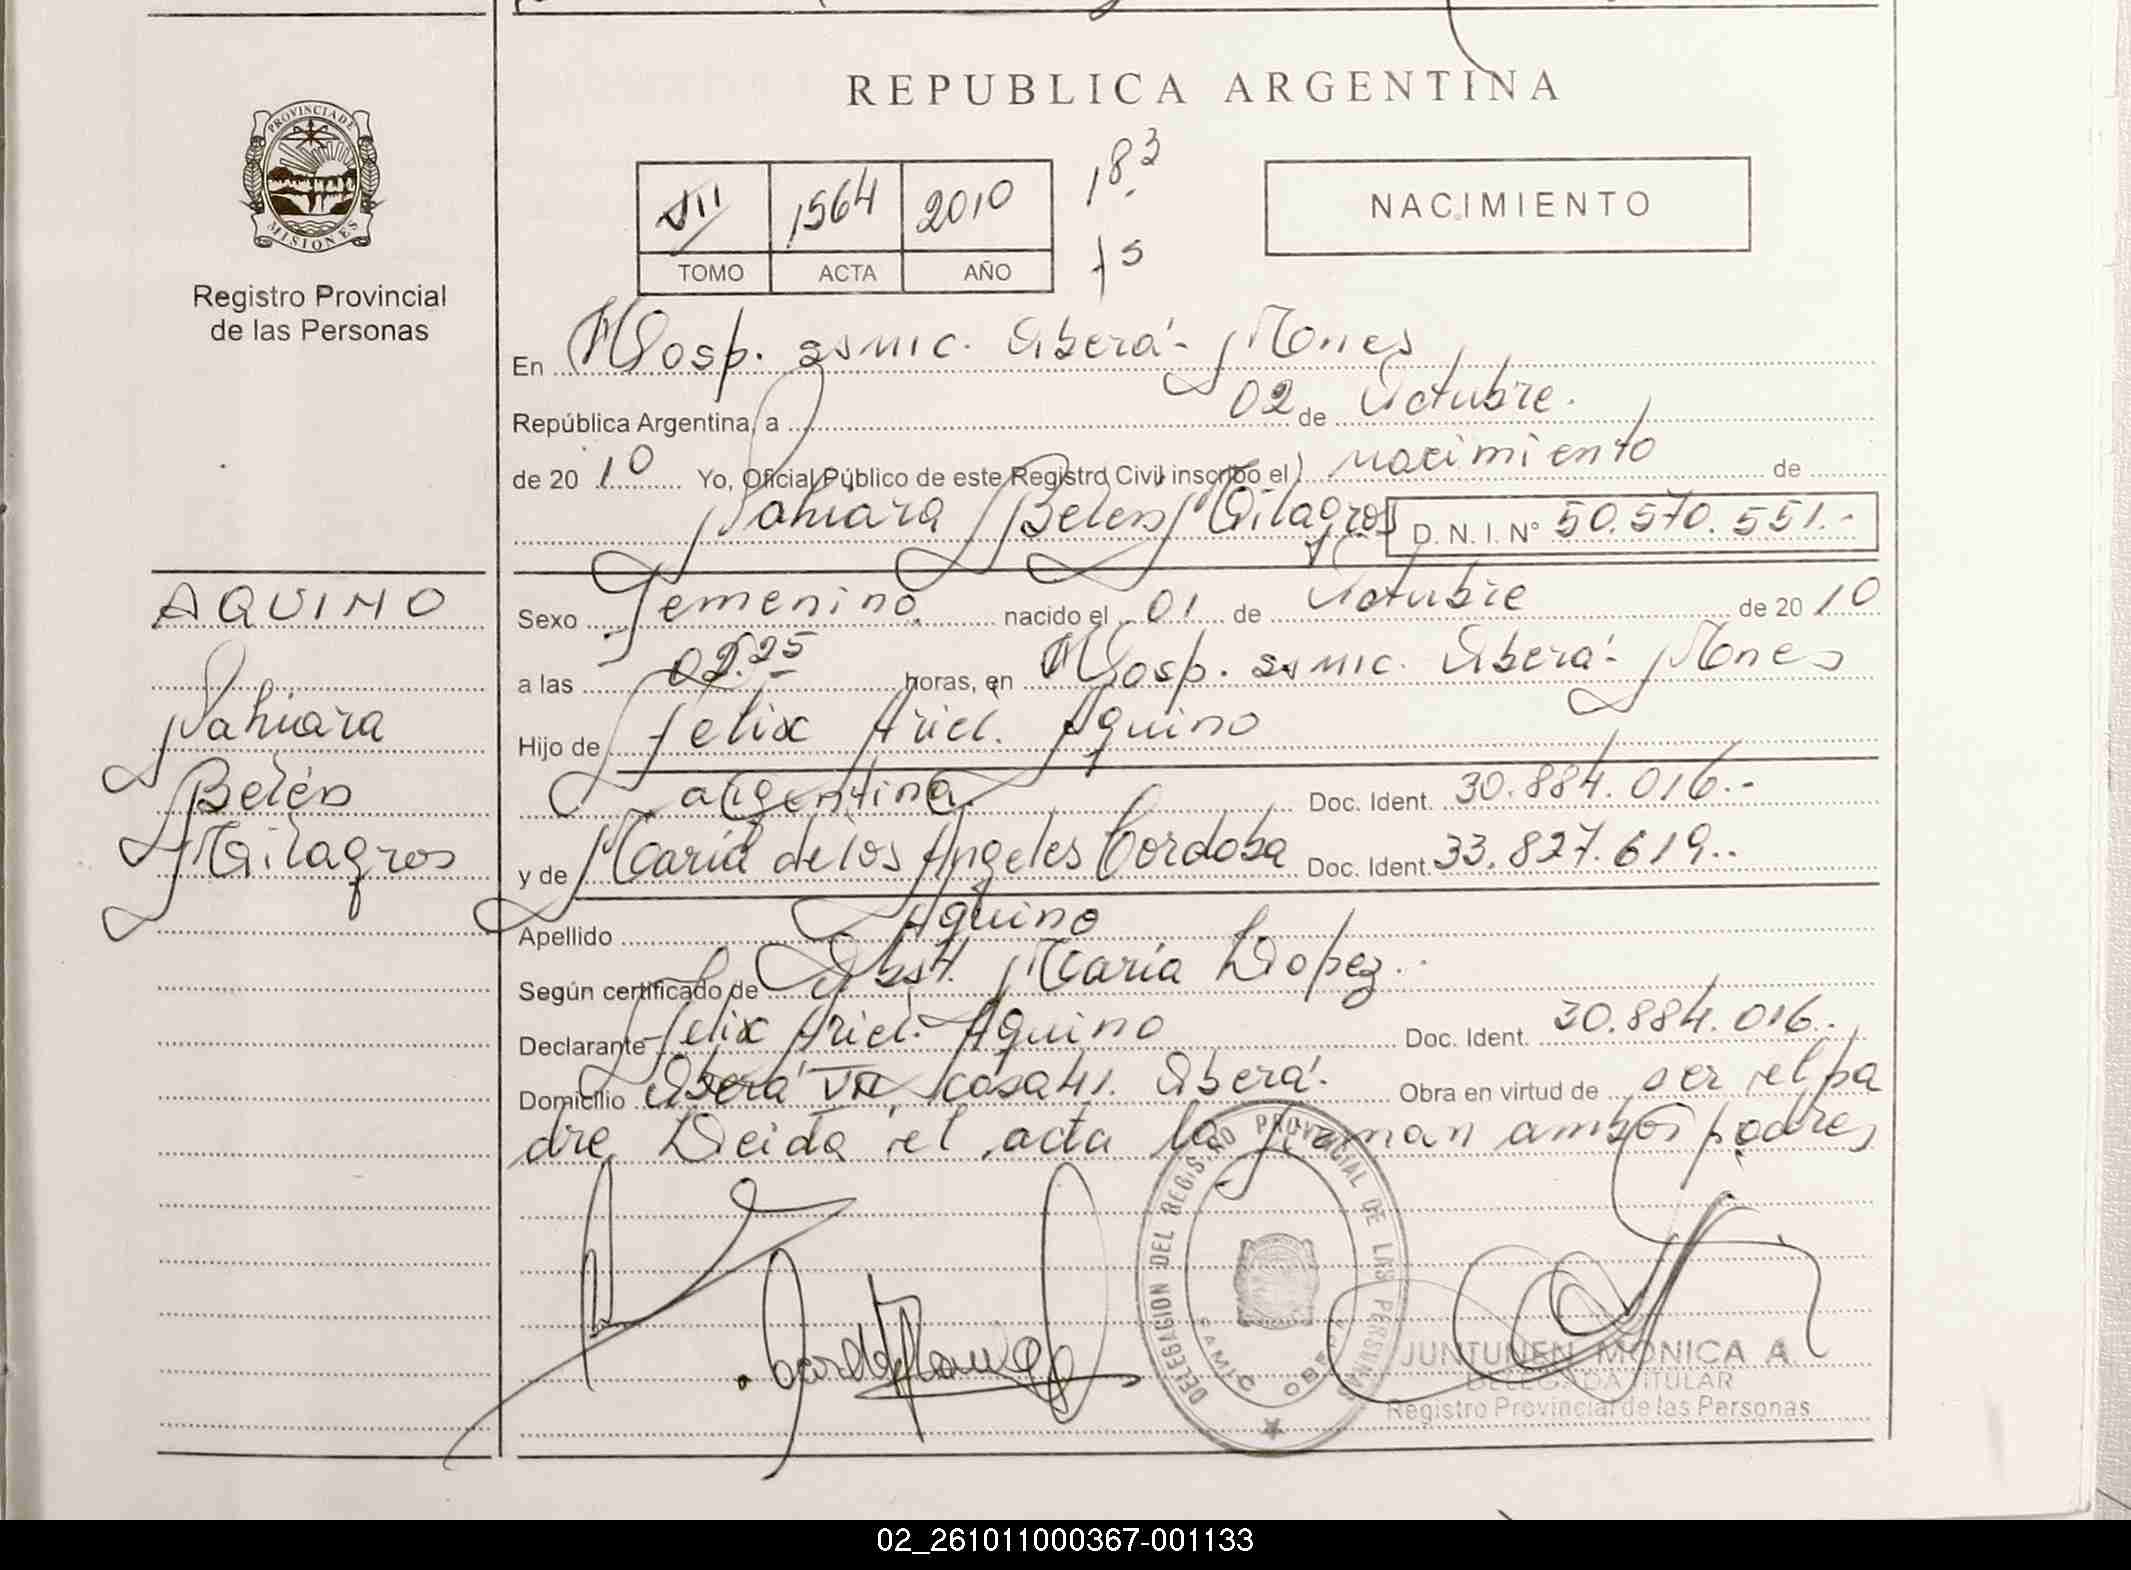 REPUBLICA ARGENTINA
PROVINCIA DE
MISIONES
Registro Provincial
de las Personas
VII 1564 2010
TOMO ACTA AÑO
18.3
f 5
NACIMIENTO
En Hosp. samic. Oberá - Mnes
República Argentina, a 02 de Octubre.
de 2010 Yo, Oficial Público de este Registro Civil inscribo el nacimiento de
Belen Milagros D. N. I. N° 50.570.551.-
AQUINO
Belén
Milagros
Sexo Femenino. nacido el 01 de Octubre de 2010
a las 02.25 horas, en Hosp. samic. Oberá - Mnes
Hijo de Felix Ariel. Aquino
argentina. Doc. Ident. 30.884.016.-
y de María de los Angeles Cordoba Doc. Ident. 33.827.619..
Apellido Aquino
Según certificado de Obst. María Lopez.
Declarante Felix Ariel. Aquino Doc. Ident. 30.884.016..
Domicilio Oberá VII casa 41. Oberá. Obra en virtud de ser el pa
dre Leida el acta la firman ambos padres
DELEGACION DEL REGISTRO PROVINCIAL DE LAS PERSONAS
SAMIC OBERA
JUNTUNEN MONICA A
DELEGADA TITULAR
Registro Provincial de las Personas
02_261011000367-001133